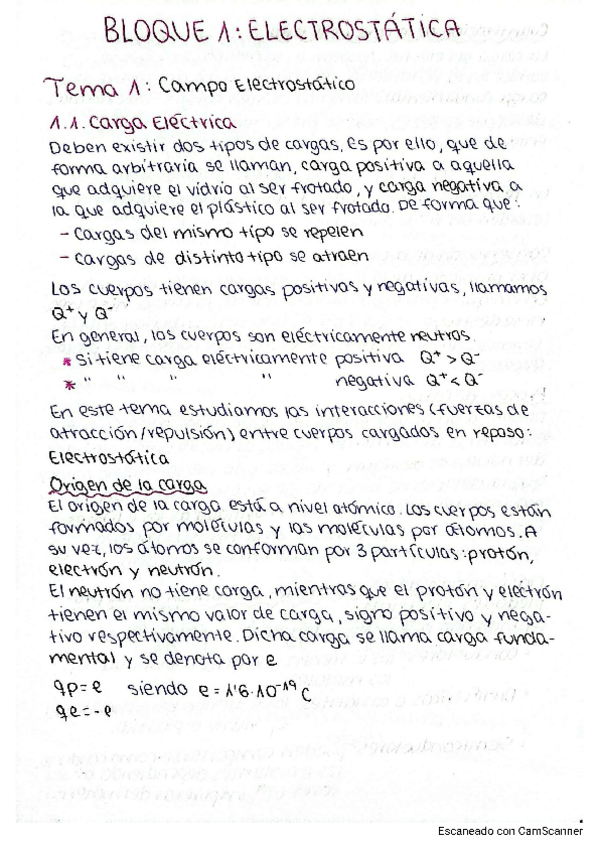 BLOQUE 1: ELECTROSTÁTICA
Tema 1: Campo Electrostático
1.1. Carga Eléctrica
Deben existir dos tipos de cargas, es por ello, que de
forma arbitraria se llaman, carga positiva a aquella
que adquiere el vidrio al ser frotado, y carga negativa a
la que adquiere el plástico al ser frotado. De forma que:
- Cargas del mismo tipo se repelen
- Cargas de distinto tipo se atraen
Los cuerpos tienen cargas positivas y negativas, llamamos
Q⁺ y Q⁻
En general, los cuerpos son eléctricamente neutros.
* Si tiene carga eléctricamente positiva Q⁺ > Q⁻
* " " " " negativa Q⁺ < Q⁻
En este tema estudiamos las interacciones (fuerzas de
atracción/repulsión) entre cuerpos cargados en reposo:
Electrostática
Origen de la carga
El origen de la carga está a nivel atómico. Los cuerpos están
formados por moléculas y las moléculas por átomos. A
su vez, los átomos se conforman por 3 partículas: protón,
electrón y neutrón.
El neutrón no tiene carga, mientras que el protón y electrón
tienen el mismo valor de carga, signo positivo y nega-
tivo respectivamente. Dicha carga se llama carga funda-
mental y se denota por e
qp = e siendo e = 1'6·10⁻¹⁹ C
qe = -e
Escaneado con CamScanner